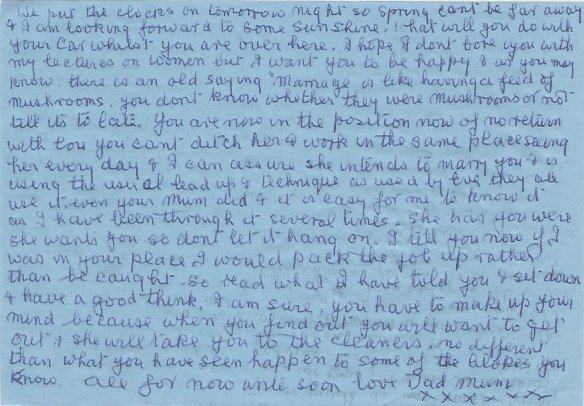 We put the clocks on tomorrow night so spring cant be far away
& I am looking forward to some sunshine. What will you do with
your car whilst you are over here. I hope I dont bore you with
my lectures on women but I want you to be happy & as you may
know. there is an old saying "Marriage is like having a feed of
mushrooms. you dont know whether they were mushrooms or not
till its to late. You are now in the position now of no return
with Lou you cant ditch her & work in the same place seeing
her every day & I can assure she intends to marry you & is
using the usual lead up & technique as used by Eve they all
use it even your Mum did & it is easy for me to know it
as I have been through it several times. She has you were
she wants you so dont let it hang on. I tell you now if I
was in your place I would pack the job up rather
than be caught. so read what I have told you & sit down
& have a good think. I am sure, you have to make up your
mind because when you find out you will want to get
out & she will take you to the cleaners, no different
than what you have seen happen to some of the blokes you
know. All for now until soon love Dad Mum
x x x x x x